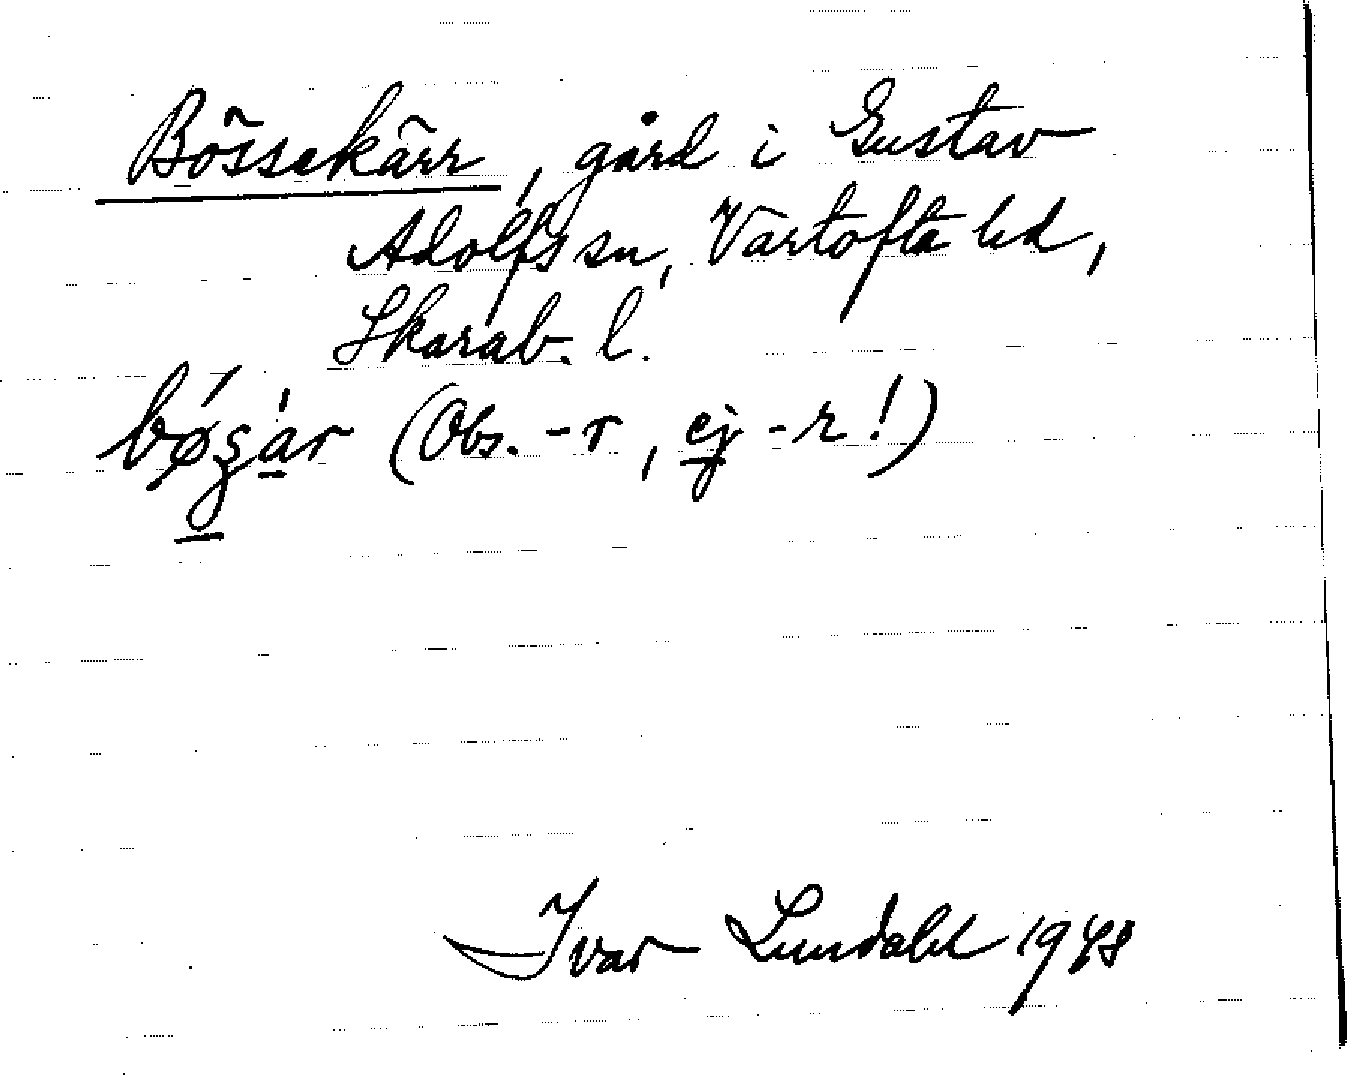 Bössekärr, gård i Gustav
Adolfs sn, Vartofta hd,
Skarab. l.
(Obs. -r, ej -r!)
Ivar Lundahl 1948